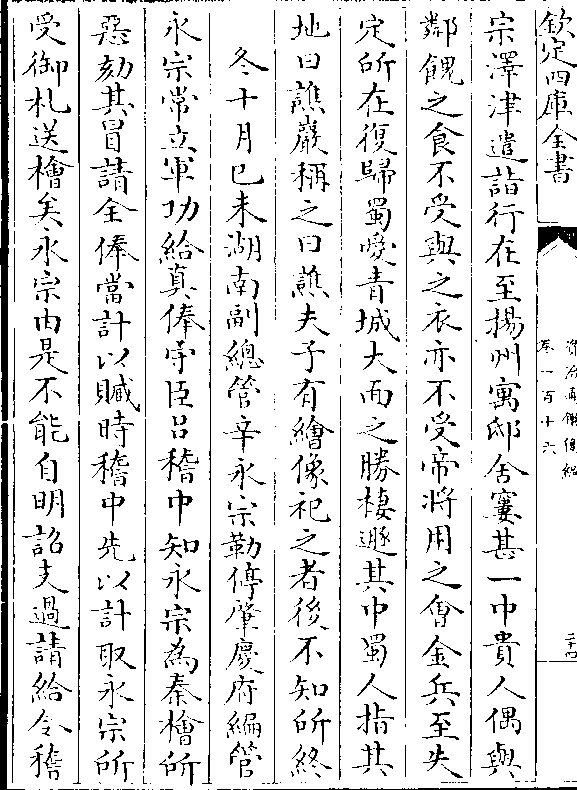 欽定四庫全書
資治通鑑後編
卷一百十六
二十四
宗澤津遣詣行在至揚州寓邸舍窶甚一中貴人偶與
鄰餽之食不受與之衣亦不受帝將用之會金兵至失
定所在復歸蜀愛青城大面之勝棲遯其中蜀人指其
地曰譙巖稱之曰譙夫子有繪像祀之者後不知所終
冬十月己未湖南副總管辛永宗勒停肇慶府編管
永宗常立軍功給真俸守臣呂稽中知永宗為秦檜所
惡劾其冒請全俸當計以贓時稽中先以計取永宗所
受御札送檜矣永宗由是不能自明詔支過請給令稽